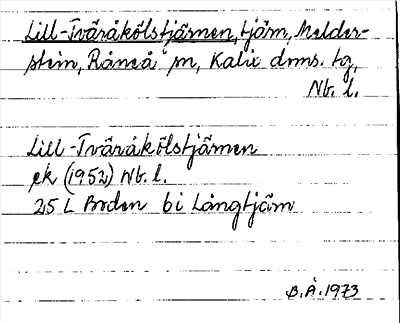 Lill-Tväråkölstjärnen, tjärn, Melder-
stein, Råneå sn, Kalix dms. tg,
Nb. l.
Lill-Tväråkölstjärnen
ek (1952) Nb. l.
25 L Boden bi Långtjärn
B.Å. 1973